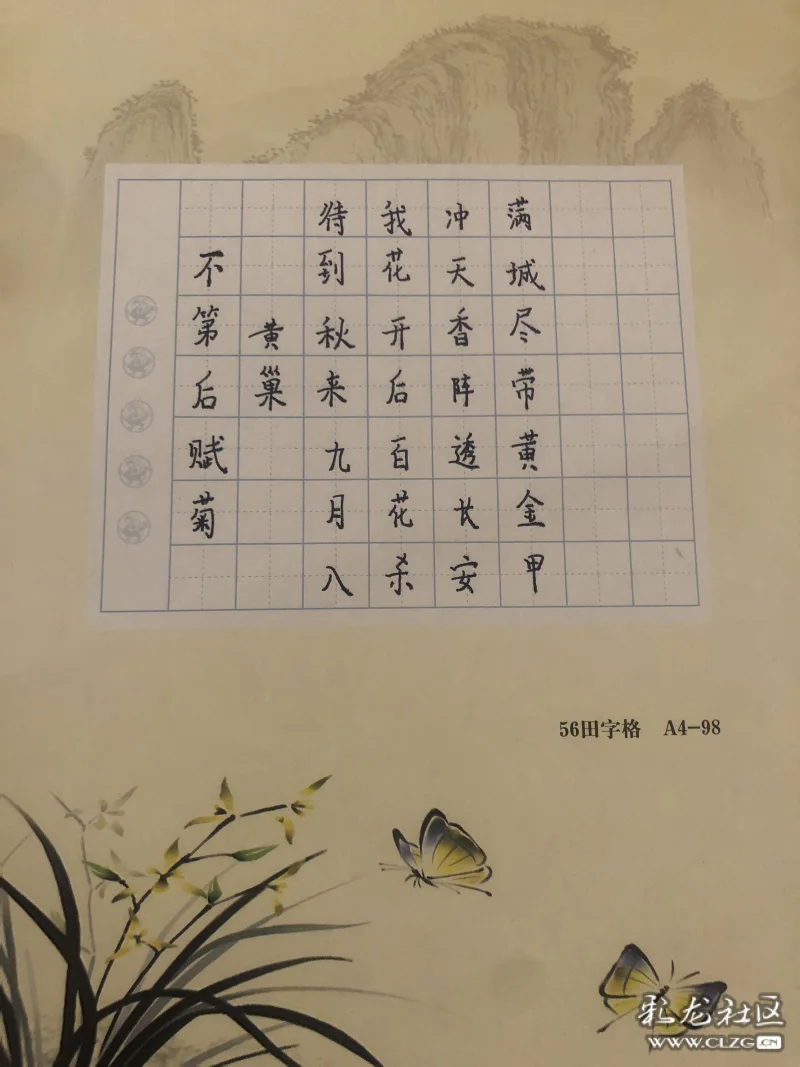 不第后赋菊
黄巢
待到秋来九月八
我花开后百花杀
冲天香阵透长安
满城尽带黄金甲
56田字格 A4-98
彩龙社区
WWW.CLZG.CN